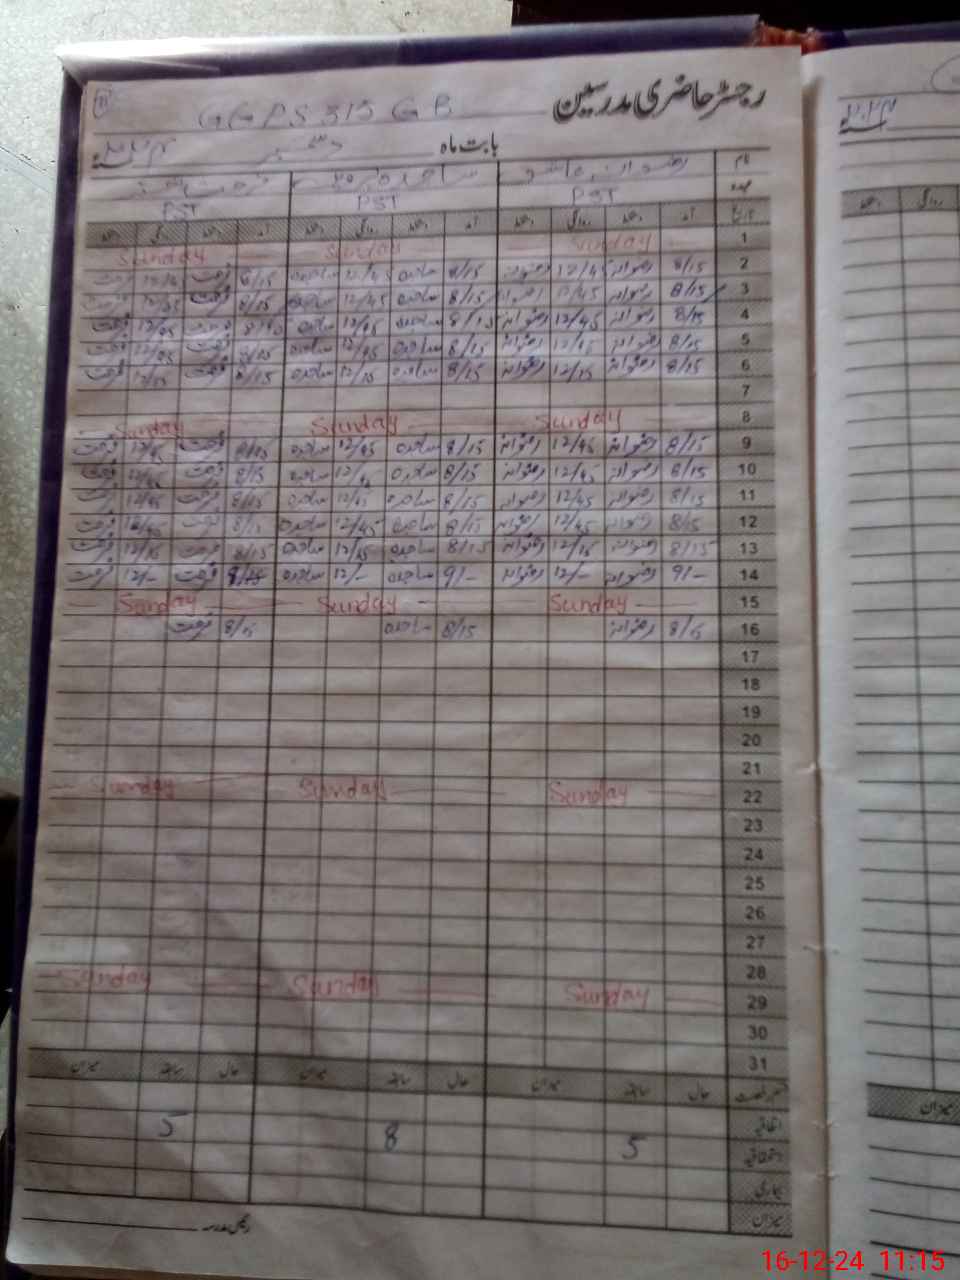 11
GGPS 315 GB رجسٹر حاضری مدرسین
بابت ماہ دسمبر ۲۰۲۴
نام رضوانہ ساجدہ فرحت
عہدہ PST PST PST
تاریخ آمد دستخط روانگی دستخط آمد دستخط روانگی دستخط آمد دستخط روانگی دستخط
1 Sunday Sunday Sunday
2 8/15 رضوانہ 12/45 رضوانہ 8/15 ساجدہ 12/45 ساجدہ 8/15 فرحت فرحت
3 8/15 رضوانہ 12/45 رضوانہ 8/15 ساجدہ 12/45 ساجدہ 8/15 فرحت 12/45 فرحت
4 8/15 رضوانہ 12/45 رضوانہ 8/15 ساجدہ 12/45 ساجدہ 8/15 فرحت 12/45 فرحت
5 8/15 رضوانہ 12/45 رضوانہ 8/15 ساجدہ 12/45 ساجدہ 8/15 فرحت 12/45 فرحت
6 8/15 رضوانہ 12/15 رضوانہ 8/15 ساجدہ 12/15 ساجدہ 8/15 فرحت 12/15 فرحت
7
8 Sunday Sunday Sunday
9 8/15 رضوانہ 12/45 رضوانہ 8/15 ساجدہ 12/45 ساجدہ 8/15 فرحت 12/45 فرحت
10 8/15 رضوانہ 12/45 رضوانہ 8/15 ساجدہ 12/45 ساجدہ 8/15 فرحت 12/45 فرحت
11 8/15 رضوانہ 12/45 رضوانہ 8/15 ساجدہ 12/45 ساجدہ 8/15 فرحت 12/45 فرحت
12 8/15 رضوانہ 12/45 رضوانہ 8/15 ساجدہ 12/45 ساجدہ 8/15 فرحت 12/45 فرحت
13 8/15 رضوانہ 12/15 رضوانہ 8/15 ساجدہ 12/15 ساجدہ 8/15 فرحت 12/15 فرحت
14 9/- رضوانہ 12/- رضوانہ 9/- ساجدہ 12/- ساجدہ فرحت 12/- فرحت
15 Sunday Sunday Sunday
16 8/15 رضوانہ 8/15 ساجدہ 8/15 فرحت
17
18
19
20
21
22 Sunday Sunday Sunday
23
24
25
26
27
28
29 Sunday Sunday Sunday
30
31
رخصت حال سابقہ میزان حال سابقہ میزان حال سابقہ میزان
اتفاقیہ 5 8 5
استحقاقیہ
بیماری
میزان
رئیس مدرسہ
میزان
16-12-24 11:15